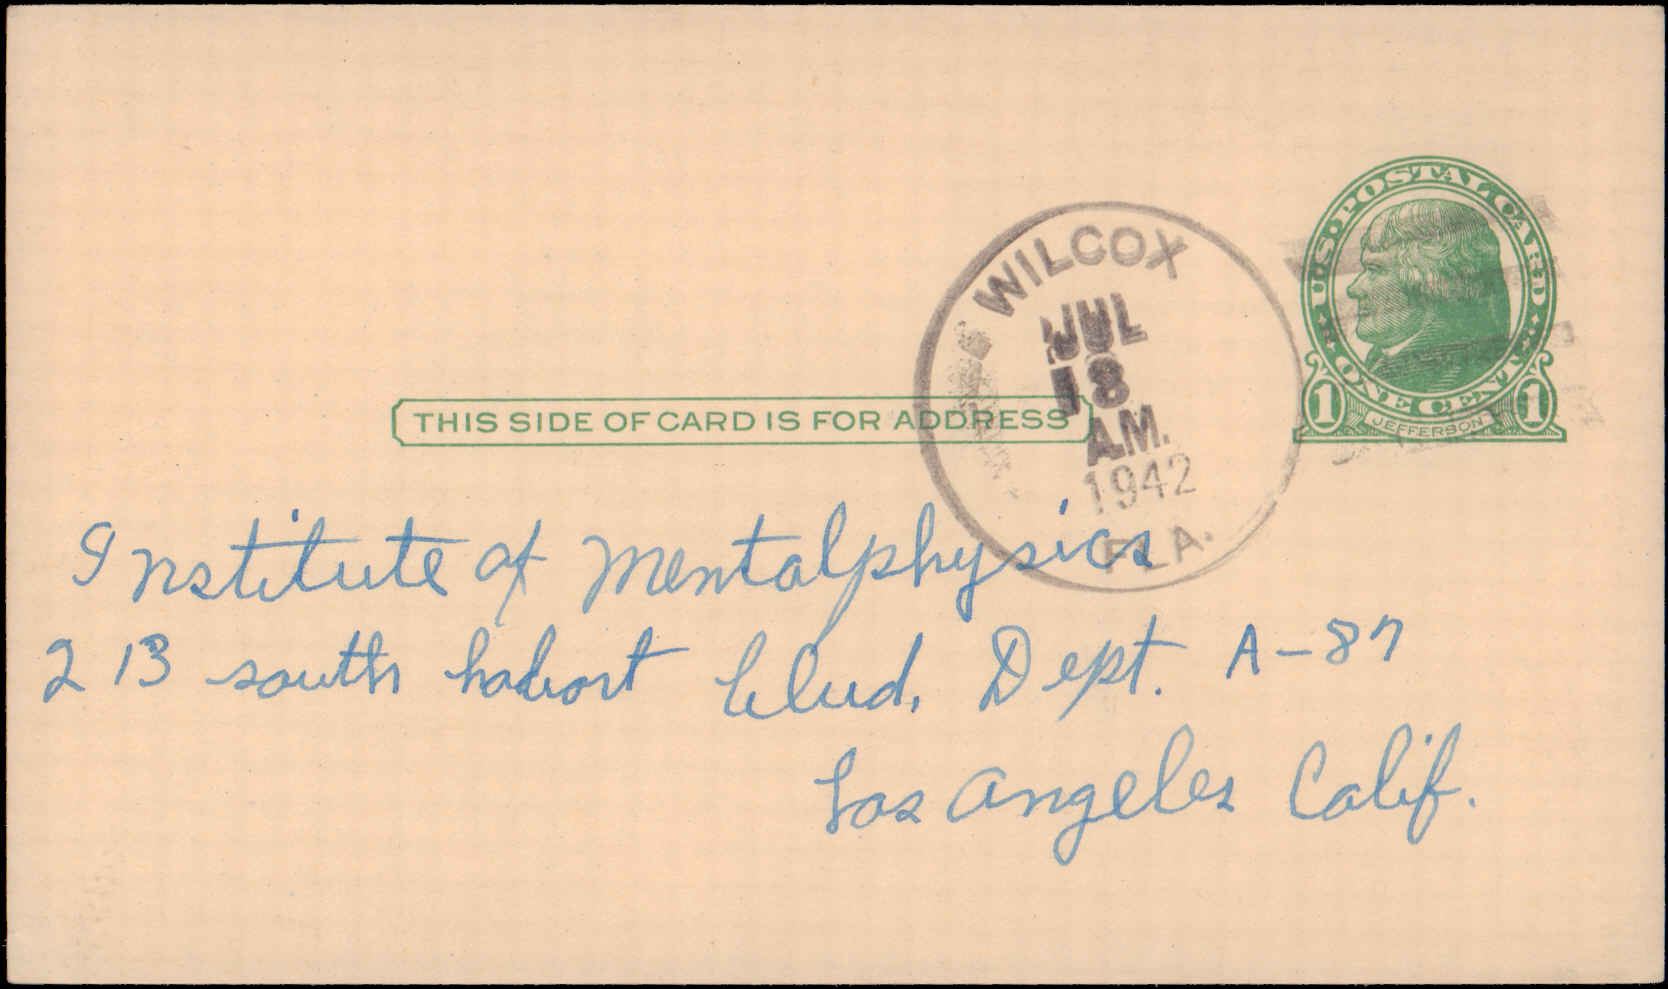 U.S. POSTAL CARD
ONE CENT
1 JEFFERSON 1
WILCOX
JUL
18
A.M.
1942
FLA.
THIS SIDE OF CARD IS FOR ADDRESS
Institute of Mentalphysics
213 south hobort blvd. Dept. A-87
Los Angeles Calif.